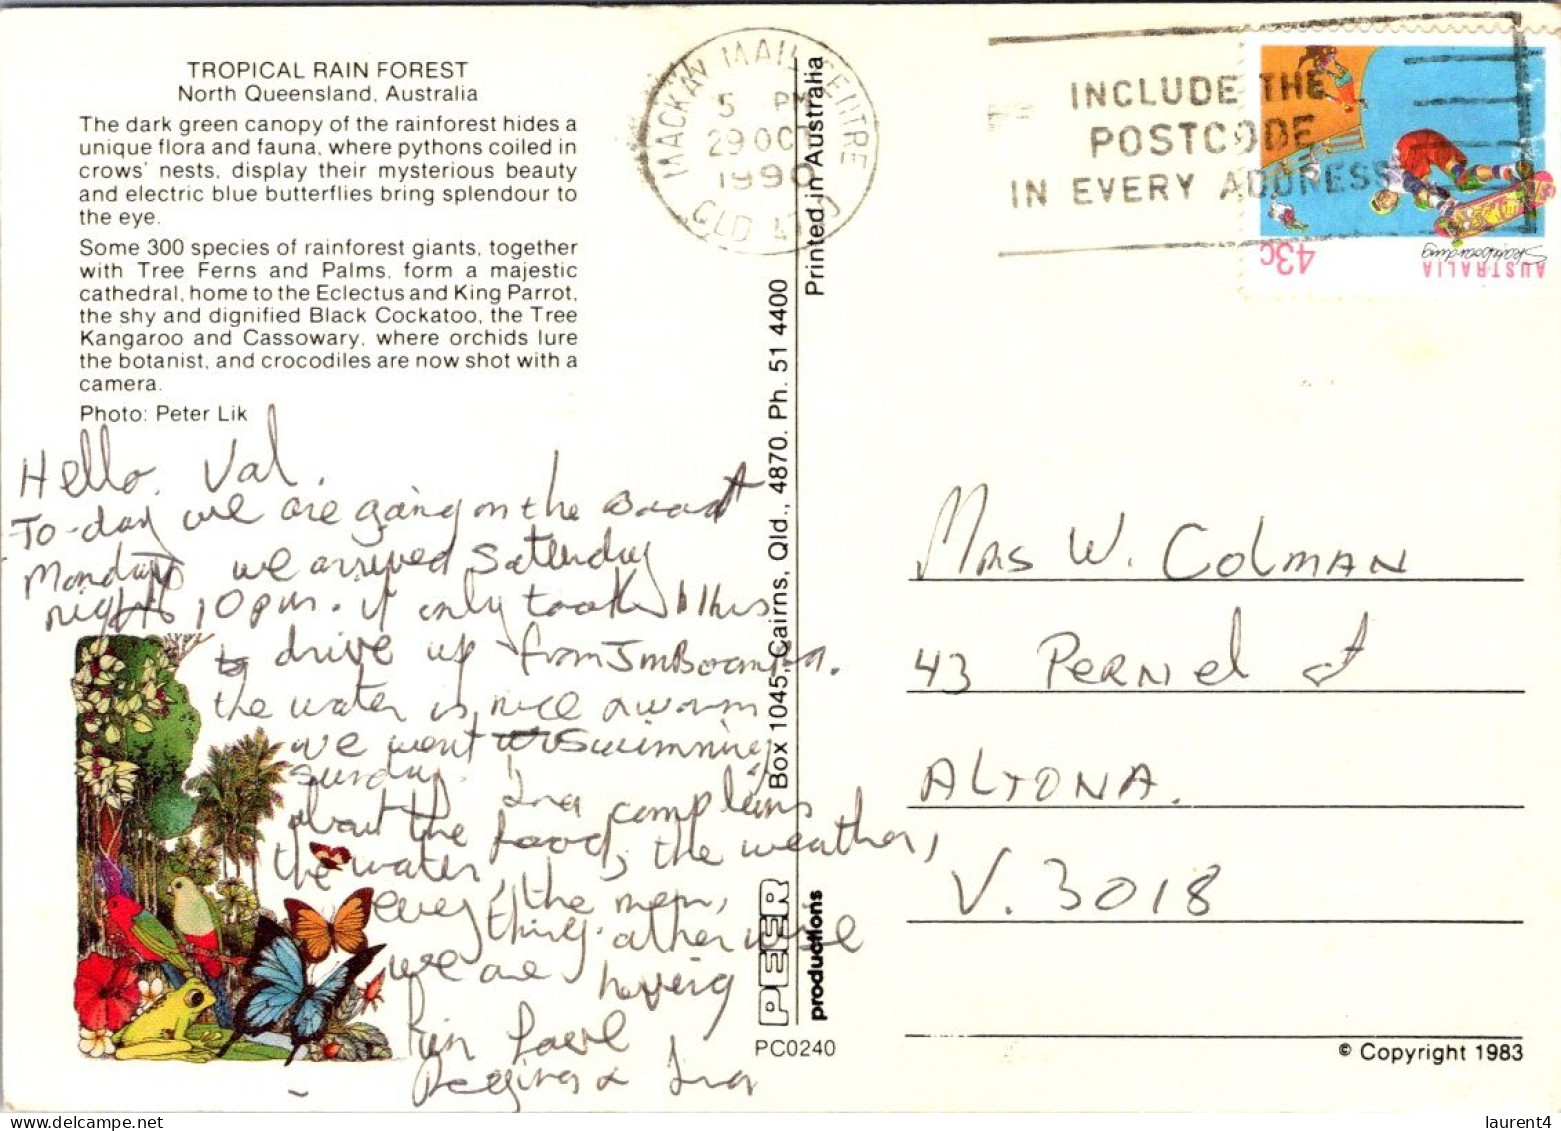 TROPICAL RAIN FOREST
North Queensland, Australia
The dark green canopy of the rainforest hides a
unique flora and fauna, where pythons coiled in
crows' nests, display their mysterious beauty
and electric blue butterflies bring splendour to
the eye.
Some 300 species of rainforest giants, together
with Tree Ferns and Palms, form a majestic
cathedral, home to the Eclectus and King Parrot,
the shy and dignified Black Cockatoo, the Tree
Kangaroo and Cassowary, where orchids lure
the botanist, and crocodiles are now shot with a
camera.
Photo: Peter Lik
Hello. Val.
To-day we are going on the Boat
Monday we arrived Saturday
night 10 pm. it only took 11 hrs
to drive up from
the water is nice & warm
we went swimming
Sunday. Ina complains
about the food, the weather,
the water, the men,
every thing. otherwise
we are having
fun love
Regina & Ina
PEER
productions
Box 1045, Cairns, Qld., 4870. Ph. 51 4400
Printed in Australia
PC0240
MACKAY MAIL CENTRE
5 PM
29 OCT
1990
QLD
INCLUDE THE
POSTCODE
IN EVERY ADDRESS
43c
AUSTRALIA
Skateboarding
Mrs W. Colman
43 Pernel St
ALTONA.
V. 3018
© Copyright 1983
laurent4